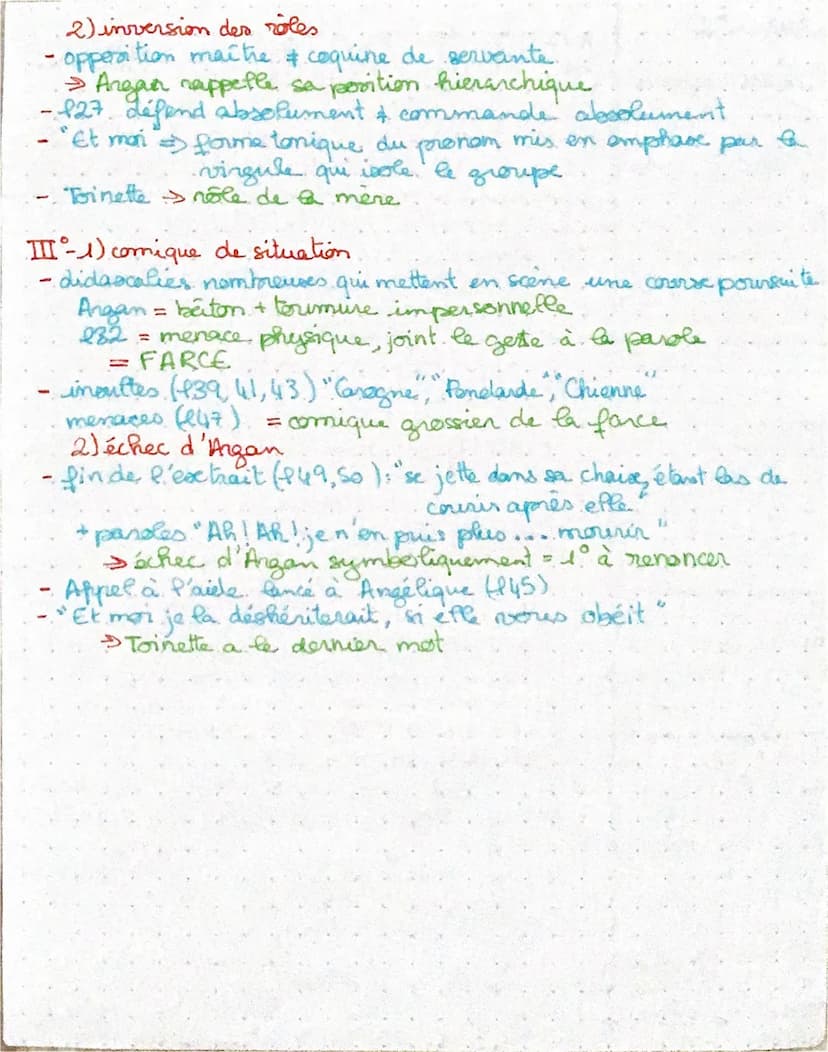 2) inversion des rôles
- opposition maître ≠ coquine de servante
→ Argan rappelle sa position hiérarchique
- l27 défend absolument ≠ commande absolument
- "Et moi => forme tonique du pronom mis en emphase par la
virgule qui isole le groupe
- Toinette → rôle de la mère
III°-1) comique de situation
- didascalies nombreuses qui mettent en scène une course poursuite
Argan = bâton + tournure impersonnelle
l32 = menace physique, joint le geste à la parole
= FARCE
- insultes (l39, 41, 43) "Carogne", "Pendarde", "Chienne"
menaces (l47) = comique grossier de la farce
2) échec d'Argan
- fin de l'extrait (l49, 50) : "se jette dans sa chaise, étant las de
courir après elle"
+ paroles "Ah ! Ah ! je n'en puis plus ... mourir"
→ échec d'Argan symboliquement = 1° à renoncer
- Appel à l'aide lancé à Angélique (l45)
- "Et moi je la déshériterait, si elle vous obéit"
→ Toinette a le dernier mot